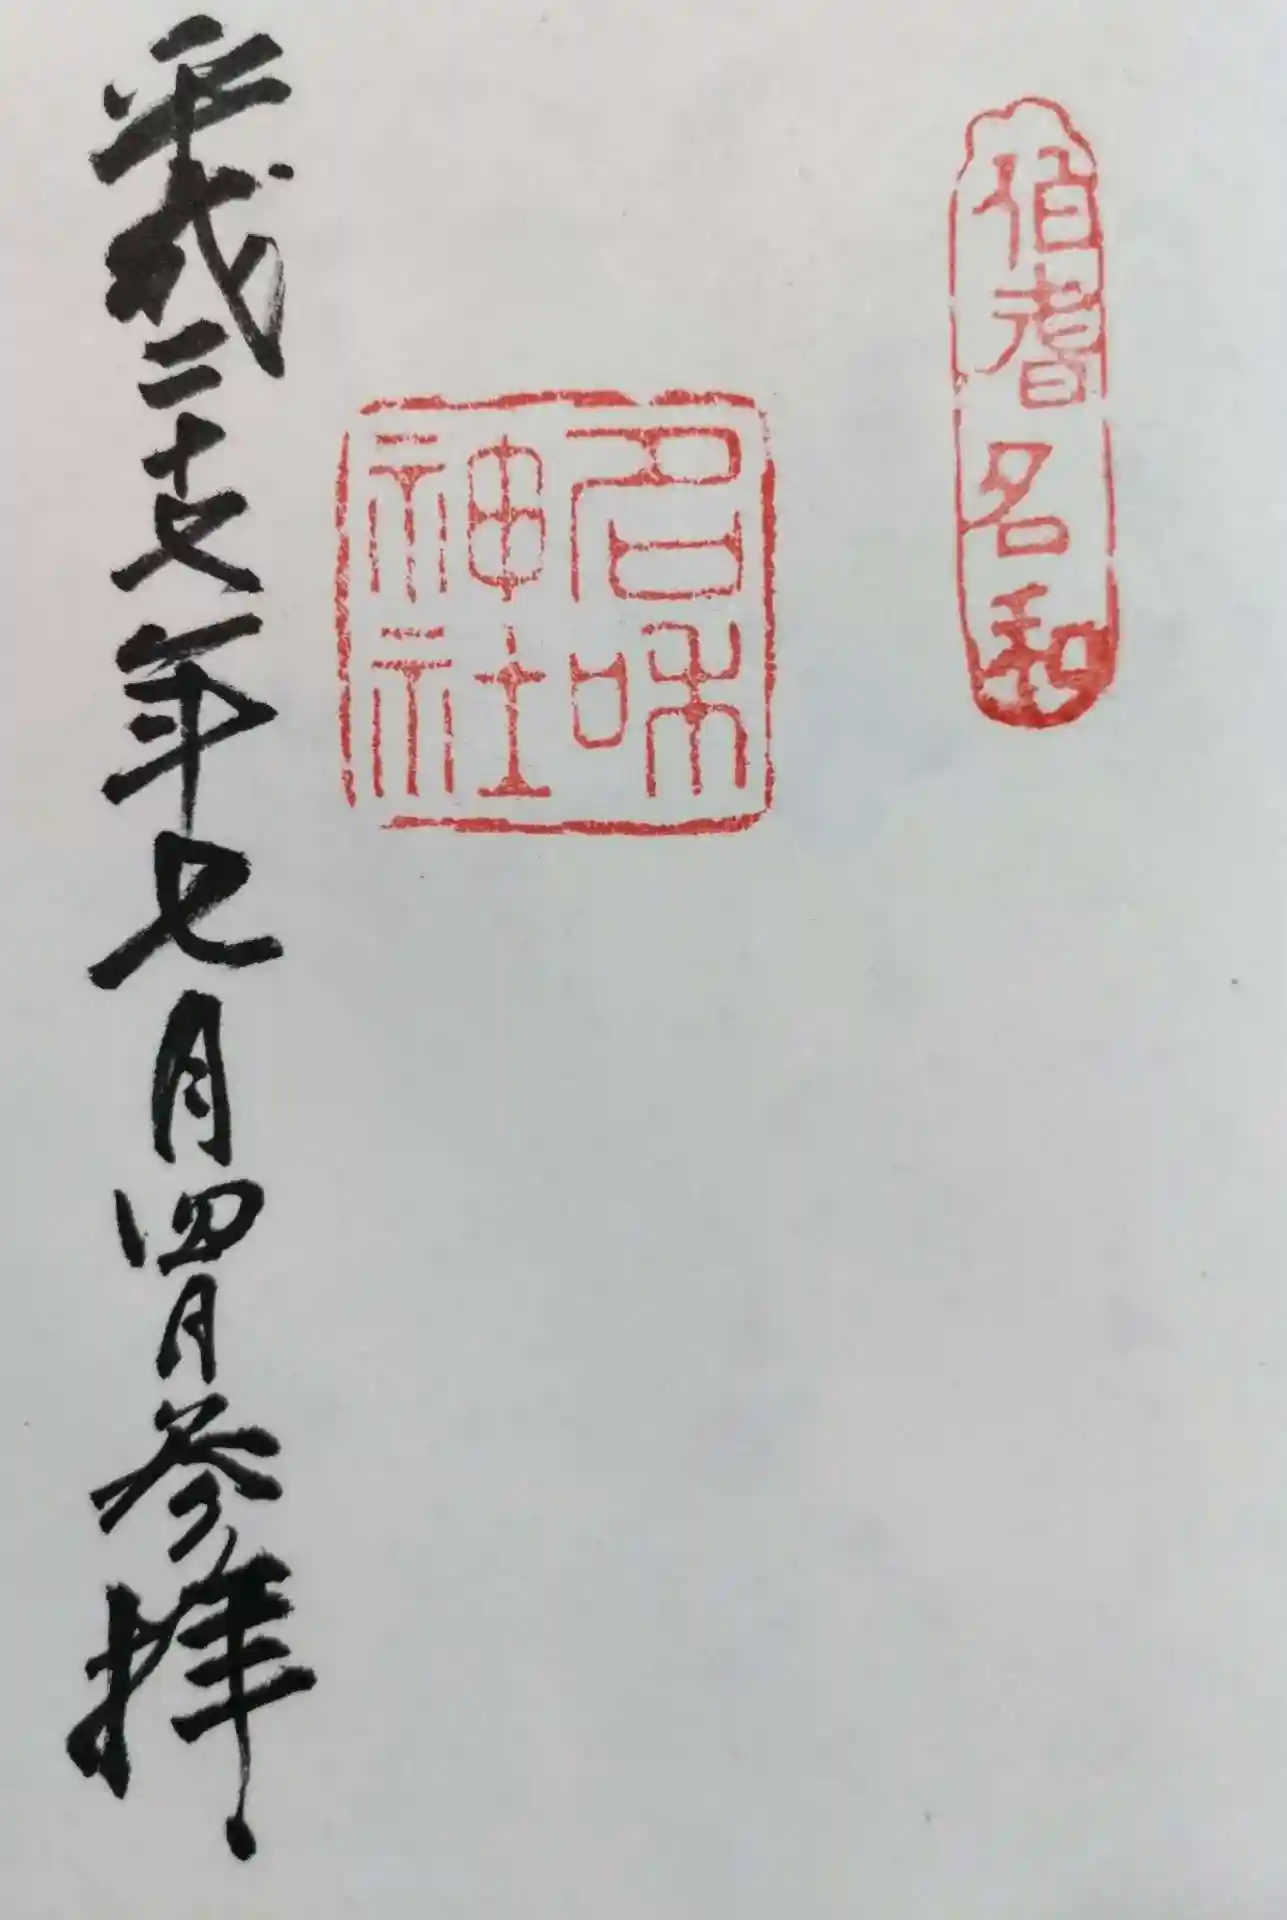 伯耆名和
名和神社
平成二十七年七月四日参拝